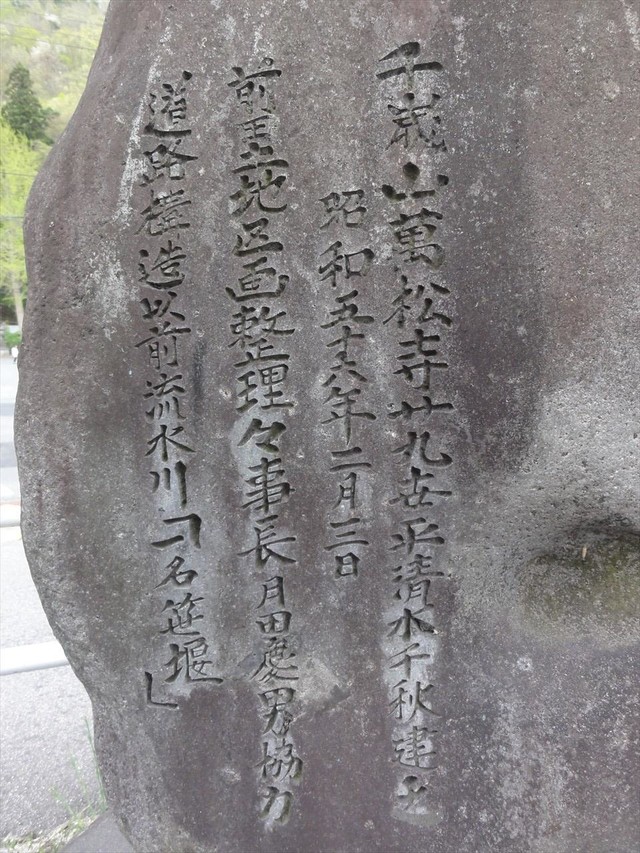 千歳山萬松寺廿九世平清水千秋建之
昭和五十六年二月三日
前王土地区画整理々事長月田慶男協力
道路構造以前流水川「名笹堰」